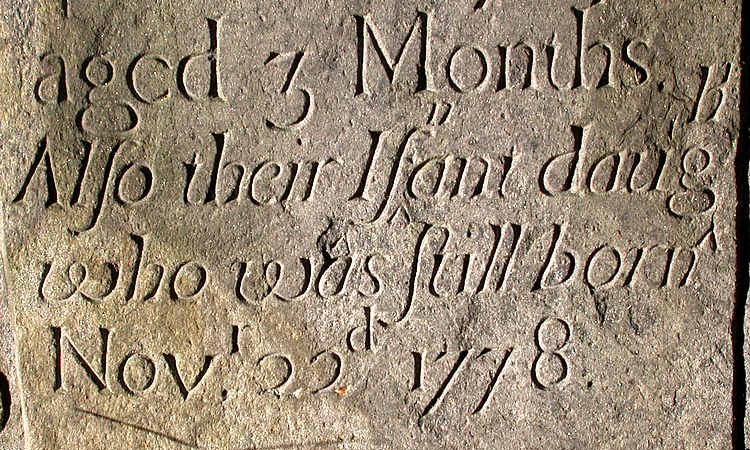 aged 3 Months.
Alſo their Infant daugh
who was ſtill born
Nov.ʳ 22ᵈ 1778.